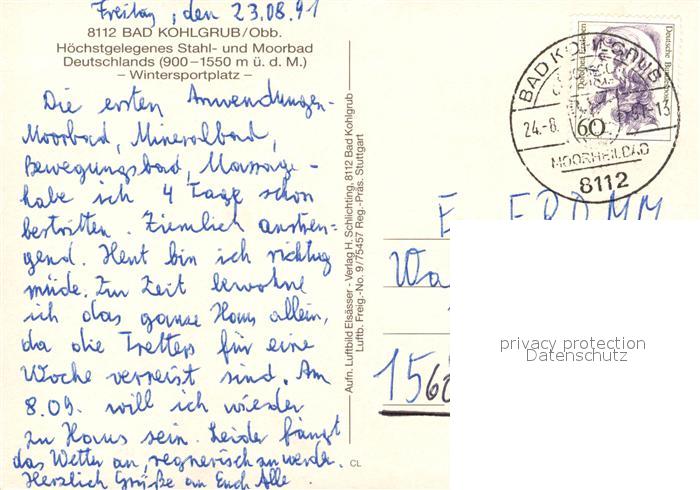 Freitag, den 23.08.91
8112 BAD KOHLGRUB/Obb.
Höchstgelegenes Stahl- und Moorbad
Deutschlands (900–1550 m ü. d. M.)
– Wintersportplatz –
Die ersten Anwendungen-
Moorbad, Mineralbad,
Bewegungsbad, Massage-
habe ich 4 Tage schon
bestritten. Ziemlich anstren=
gend. Heut bin ich richtig
müde. Zur Zeit bewohne
ich das ganze Haus allein,
da die Tretters für eine
Woche verreist sind. Am
8.09. will ich wieder
zu Haus sein. Leider fängt
das Wetter an, regnerisch zu werden.
Herzlich Grüße an Euch Alle
Aufn. Luftbild Elsässer - Verlag H. Schlichting, 8112 Bad Kohlgrub
Luftb. Freig.-No. 9/75457 Reg.-Präs. Stuttgart
CL
Deutsche Bundespost
60
BAD KOHLGRUB
24.-8. 91-13
MOORHEILBAD
8112
F. FROMM
Wa
15
privacy protection
Datenschutz